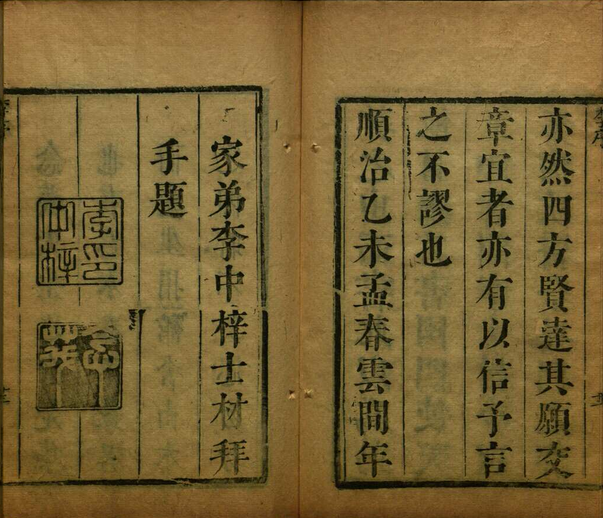 亦然四方賢達其願交
章宜者亦有以信予言
之不謬也
順治乙未孟春雲間年
家弟李中梓士材拜
手題
李中梓印